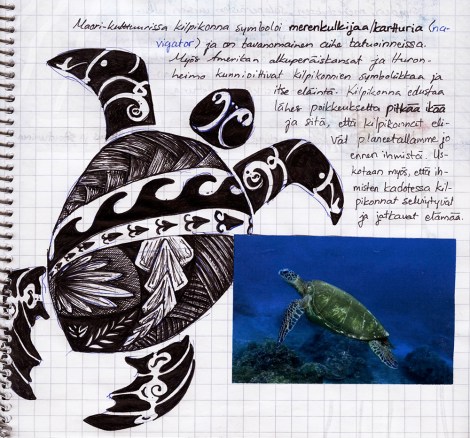 Maori-kulttuurissa kilpikonna symboloi merenkulkijaa/kartturia (na-
vigator) ja on tavanomainen aihe tatuoinneissa.
Myös Amerikan alkuperäiskansat ja Huron-
heimo kunnioittivat kilpikonnien symboliikkaa ja
itse eläintä. Kilpikonna edustaa
lähes poikkeuksetta pitkää ikää
ja sitä, että kilpikonnat eli-
vät planeetallamme jo
ennen ihmistä. Us-
kotaan myös, että ih-
misten kadotessa kil-
pikonnat selviytyvät
ja jatkavat elämää.